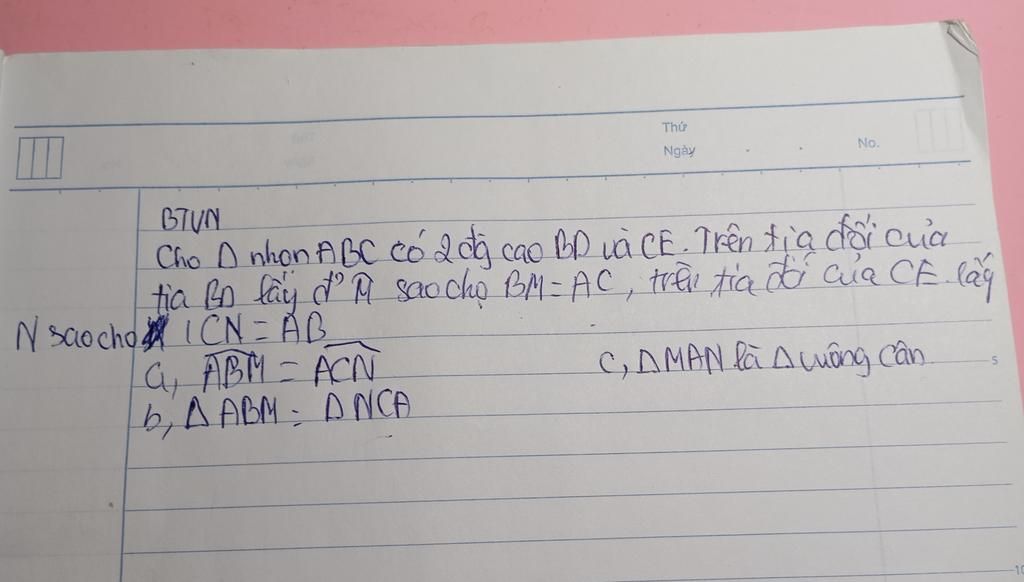 Thứ
Ngày
No.
BTVN
Cho Δ nhọn ABC có 2 đg cao BD và CE. Trên tia đối của
tia BD lấy đ' M sao cho BM = AC, trên tia đối của CE lấy
N sao cho CN = AB
a, ABM = ACN
c, Δ MAN là Δ vuông cân
b, Δ ABM = Δ NCA
5
10